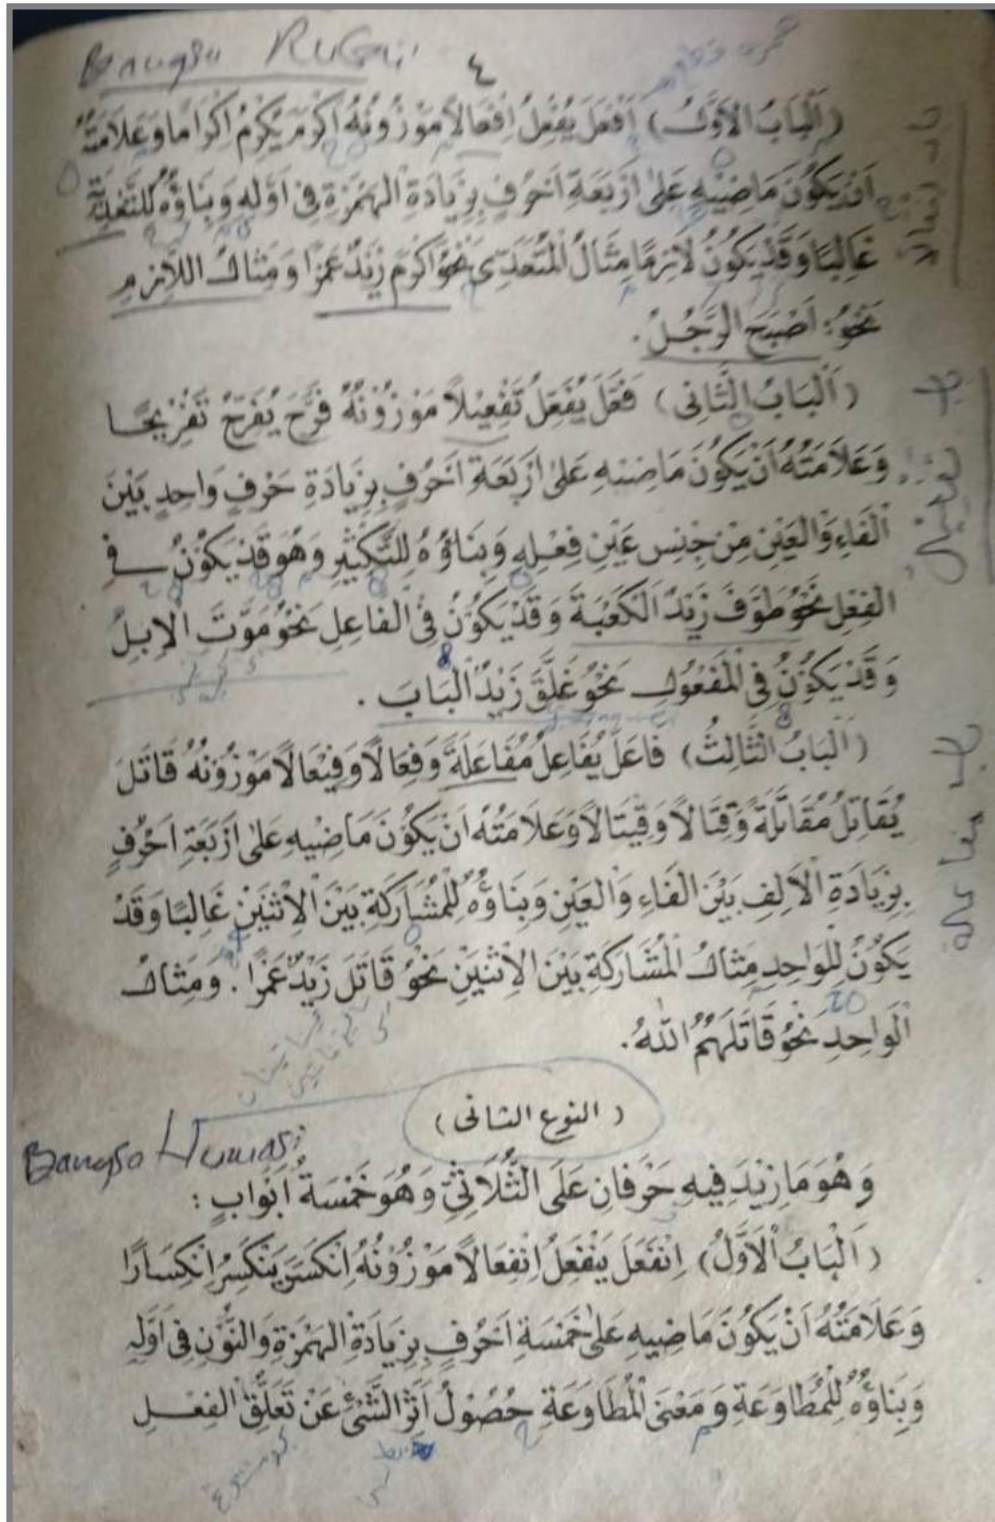 Bangsa Ruba'i
٤
(اَلْبَابُ الْاَوَّلُ) اَفْعَلَ يُفْعِلُ اِفْعَالًا مَوْزُوْنُهُ اَكْرَمَ يُكْرِمُ اِكْرَامًا وَعَلَامَتُهُ
اَنْ يَكُوْنَ مَاضِيْهِ عَلٰى اَرْبَعَةِ اَحْرُفٍ بِزِيَادَةِ الْهَمْزَةِ فِى اَوَّلِهِ وَبِنَاؤُهُ لِلتَّعْدِيَّةِ
غَالِبًا وَقَدْ يَكُوْنُ لَازِمًا مِثَالُ الْمُتَعَدِّى نَحْوُ اَكْرَمَ زَيْدٌ عَمْرًا وَمِثَالُ اللَّازِمِ
نَحْوُ: اَصْبَحَ الرَّجُلُ.
(اَلْبَابُ الثَّانِى) فَعَّلَ يُفَعِّلُ تَفْعِيْلًا مَوْزُوْنُهُ فَرَّحَ يُفَرِّحُ تَفْرِيْحًا
وَعَلَامَتُهُ اَنْ يَكُوْنَ مَاضِيْهِ عَلٰى اَرْبَعَةِ اَحْرُفٍ بِزِيَادَةِ حَرْفٍ وَاحِدٍ بَيْنَ
الْفَاءِ وَالْعَيْنِ مِنْ جِنْسِ عَيْنِ فِعْلِهِ وَبِنَاؤُهُ لِلتَّكْثِيْرِ وَهُوَ قَدْ يَكُوْنُ فِى
الْفِعْلِ نَحْوُ طَوَّفَ زَيْدٌ الْكَعْبَةَ وَقَدْ يَكُوْنُ فِى الْفَاعِلِ نَحْوُ مَوَّتَ الْاِبِلُ
وَقَدْ يَكُوْنُ فِى الْمَفْعُوْلِ نَحْوُ غَلَّقَ زَيْدٌ الْبَابَ.
(اَلْبَابُ الثَّالِثُ) فَاعَلَ يُفَاعِلُ مُفَاعَلَةً وَفِعَالًا وَفِيْعَالًا مَوْزُوْنُهُ قَاتَلَ
يُقَاتِلُ مُقَاتَلَةً وَقِتَالًا وَقِيْتَالًا وَعَلَامَتُهُ اَنْ يَكُوْنَ مَاضِيْهِ عَلٰى اَرْبَعَةِ اَحْرُفٍ
بِزِيَادَةِ الْاَلِفِ بَيْنَ الْفَاءِ وَالْعَيْنِ وَبِنَاؤُهُ لِلْمُشَارَكَةِ بَيْنَ الْاِثْنَيْنِ غَالِبًا وَقَدْ
يَكُوْنُ لِلْوَاحِدِ مِثَالُ الْمُشَارَكَةِ بَيْنَ الْاِثْنَيْنِ نَحْوُ قَاتَلَ زَيْدٌ عَمْرًا. وَمِثَالُ
الْوَاحِدِ نَحْوُ قَاتَلَهُمُ اللّٰهُ.
(النوع الثانى)
Bangsa
وَهُوَ مَا زِيْدَ فِيْهِ حَرْفَانِ عَلَى الثُّلَاثِىِّ وَهُوَ خَمْسَةُ اَبْوَابٍ:
(اَلْبَابُ الْاَوَّلُ) اِنْفَعَلَ يَنْفَعِلُ اِنْفِعَالًا مَوْزُوْنُهُ اِنْكَسَرَ يَنْكَسِرُ اِنْكِسَارًا
وَعَلَامَتُهُ اَنْ يَكُوْنَ مَاضِيْهِ عَلٰى خَمْسَةِ اَحْرُفٍ بِزِيَادَةِ الْهَمْزَةِ وَالنُّوْنِ فِى اَوَّلِهِ
وَبِنَاؤُهُ لِلْمُطَاوَعَةِ وَمَعْنَى الْمُطَاوَعَةِ حُصُوْلُ اَثَرِ الشَّئْىِ عَنْ تَعَلُّقِ الْفِعْلِ
باب تفعيل
باب مفاعلة